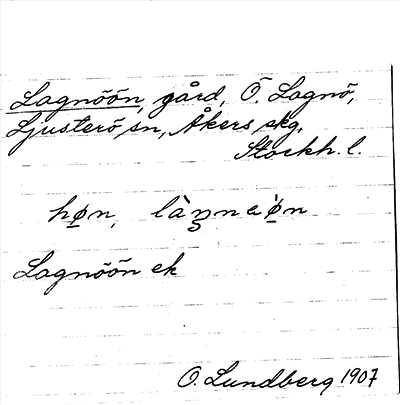 Lagnöön, gård, Ö. Lagnö,
Ljusterö sn, Åkers skg.
Stockh. l.
Lagnöön ek
O. Lundberg 1907